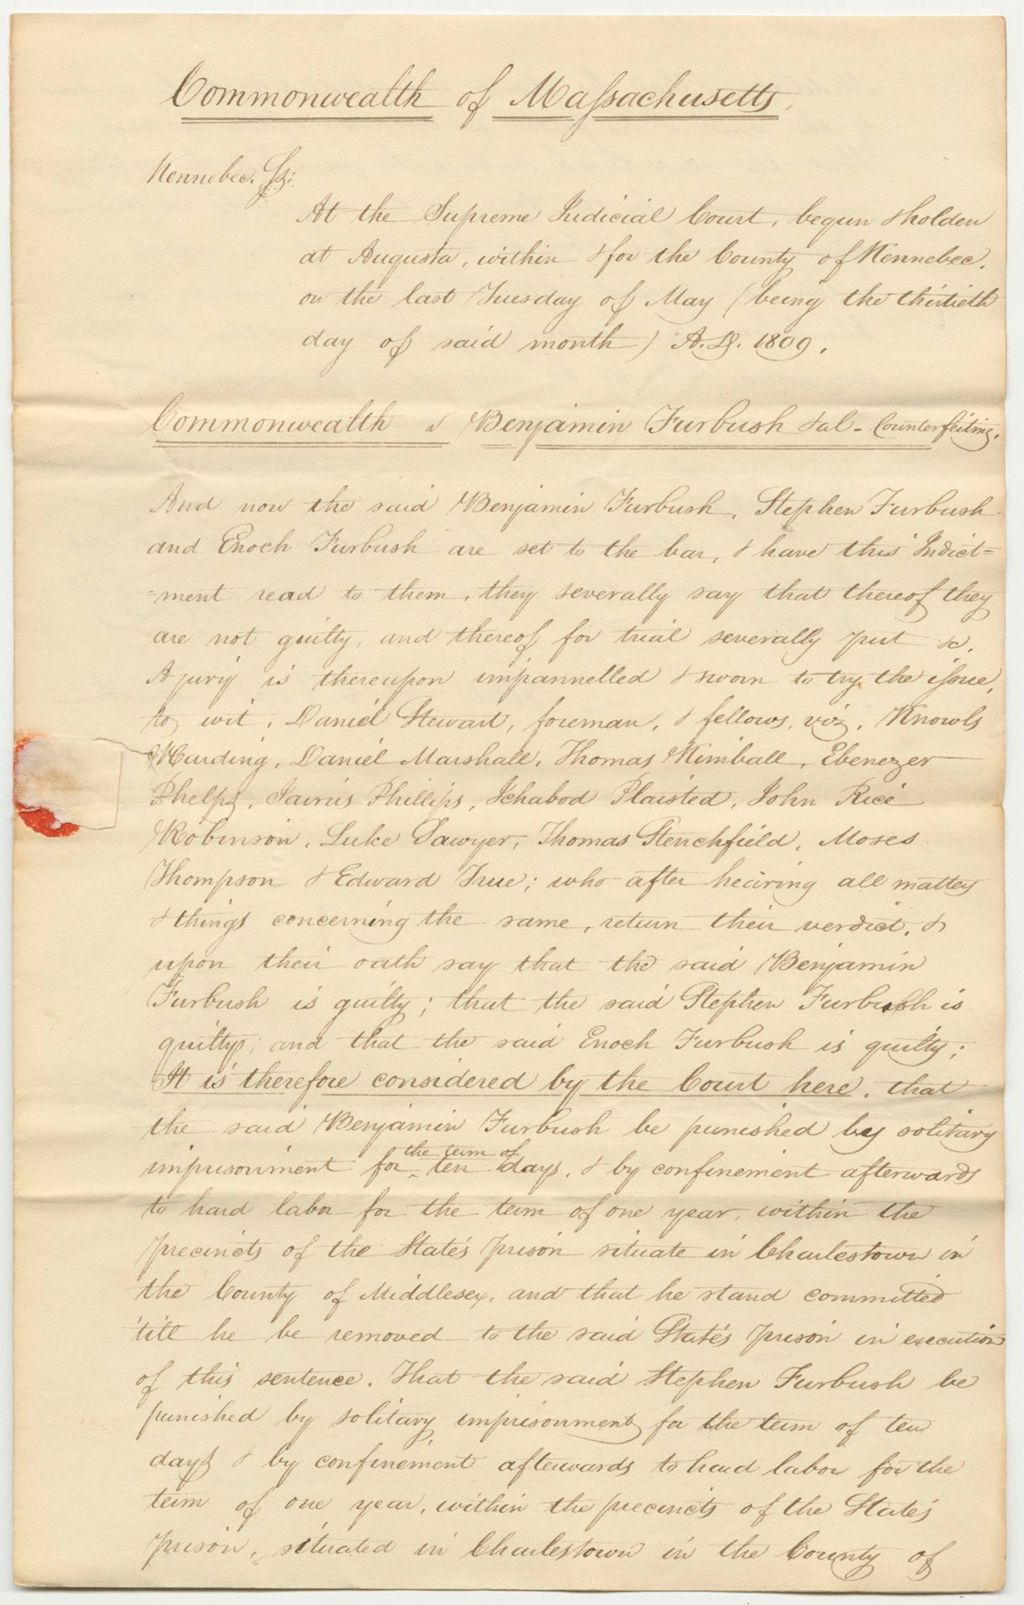 Commonwealth of Massachusetts.
Kennebec. Ss:
At the Supreme Judicial Court, begun & holden
at Augusta, within & for the County of Kennebec,
on the last Tuesday of May (being the thirtieth
day of said month) A.D. 1809.
Commonwealth v Benjamin Furbush & al - Counterfeiting.
And now the said Benjamin Furbush, Stephen Furbush
and Enoch Furbush are set to the bar, & have this Indict=
=ment read to them, they severally say that thereof they
are not guilty, and thereof for trial severally put &c.
A jury is thereupon impannelled & sworn to try the issue,
to wit, Daniel Stewart, foreman, & fellows, viz, Knowls
Harding, Daniel Marshall, Thomas Kimball, Ebenezer
Phelps, Jairus Phillips, Ichabod Plaisted, John Rice
Robinson, Luke Sawyer, Thomas Stenchfield, Moses
Thompson & Edward True; who after hearing all matters
& things concerning the same, return their verdict, &
upon their oath say that the said Benjamin
Furbush is guilty; that the said Stephen Furbush is
guilty; and that the said Enoch Furbush is guilty;
It is therefore considered by the Court here, that
the said Benjamin Furbush be punished by solitary
imprisonment for the term of ten days, & by confinement afterwards
to hard labor for the term of one year, within the
precincts of the State's prison situate in Charlestown in
the County of Middlesex, and that he stand committed
'till he be removed to the said State's prison in execution
of this sentence. That the said Stephen Furbush be
punished by solitary imprisonment for the term of ten
days & by confinement afterwards to hard labor for the
term of one year, within the precincts of the State's
prison, situated in Charlestown in the County of